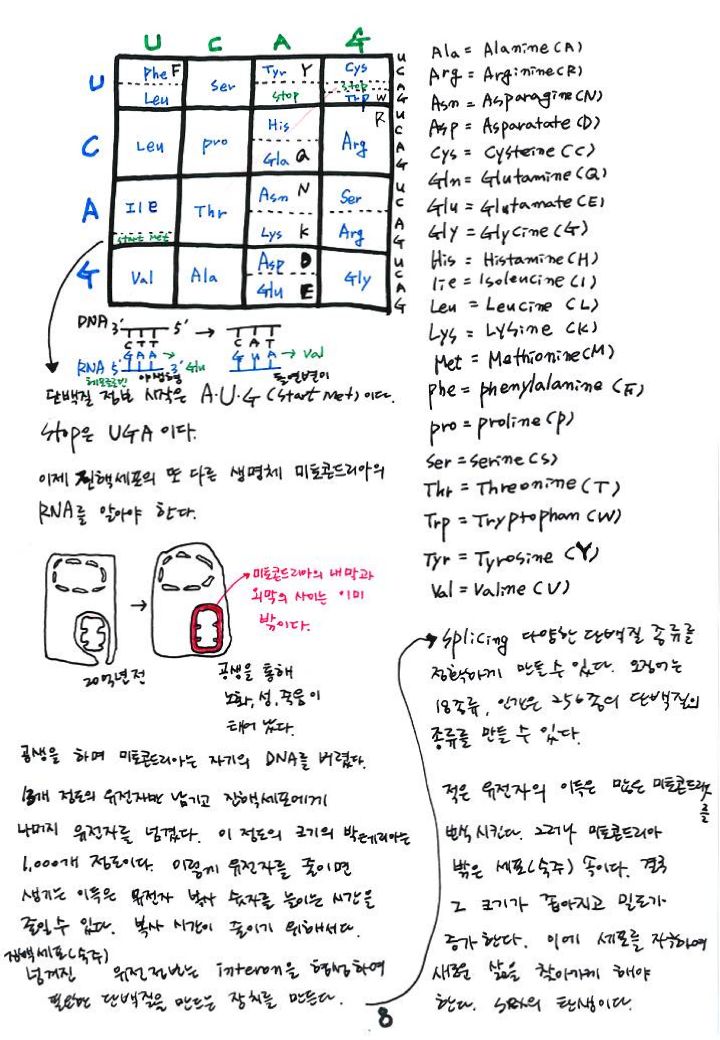 U C A G
U Phe F Ser Tyr Y Cys U
Leu stop stop C
Trp W A
G
C Leu pro His Arg R U
Gla Q C
A
G
A Ile E Thr Asn N Ser U
C
start Met Lys K Arg A
G
G Val Ala Asp D Gly U
C
Glu E A
G
DNA 3' 5' →
C T T C A T
G A A G U A → Val
RNA 5' 3' Glu
헤모글로빈 야생형 돌연변이
단백질 정보 시작은 A·U·G (Start Met) 이다.
Stop은 UGA 이다.
이제 진핵세포의 또 다른 생명체 미토콘드리아의
RNA를 알아야 한다.
미토콘드리아의 내막과
외막의 사이는 이미
밖이다.
20억년전
공생을 통해
노화, 성, 죽음이
태어 났다.
공생을 하며 미토콘드리아는 자기의 DNA를 버렸다.
13개 정도의 유전자만 남기고 진핵세포에게
나머지 유전자를 넘겼다. 이 정도의 크기의 박테리아는
1,000개 정도이다. 이렇게 유전자를 줄이면
생기는 이득은 유전자 복사 숫자를 늘이는 시간을
줄일 수 있다. 복사 시간이 줄이기 위해서다.
진핵세포(숙주)
넘겨진 유전정보는 interon을 형성하여
필요한 단백질을 만드는 장치를 만든다.
Ala = Alanine (A)
Arg = Arginine (R)
Asn = Asparagine (N)
Asp = Asparatate (D)
Cys = Cysteine (C)
Gln = Glutamine (Q)
Glu = Glutamate (E)
Gly = Glycine (G)
His = Histamine (H)
Ile = Isoleucine (I)
Leu = Leucine (L)
Lys = Lysine (K)
Met = Methionine (M)
Phe = phenylalanine (F)
pro = proline (p)
Ser = serine (S)
Thr = Threonine (T)
Trp = Tryptophan (W)
Tyr = Tyrosine (Y)
Val = Valine (V)
splicing 다양한 단백질 종류를
정확하게 만들 수 있다. 오징어는
18종류, 인간은 256종의 단백질의
종류를 만들 수 있다.
적은 유전자의 이득은 많은 미토콘드리아를
번식시킨다. 그러나 미토콘드리아
밖은 세포(숙주) 속이다. 결국
그 크기가 좁아지고 밀도가
증가한다. 이에 세포를 자극하여
새로운 삶을 찾아가게 해야
한다. sex의 탄생이다.
8